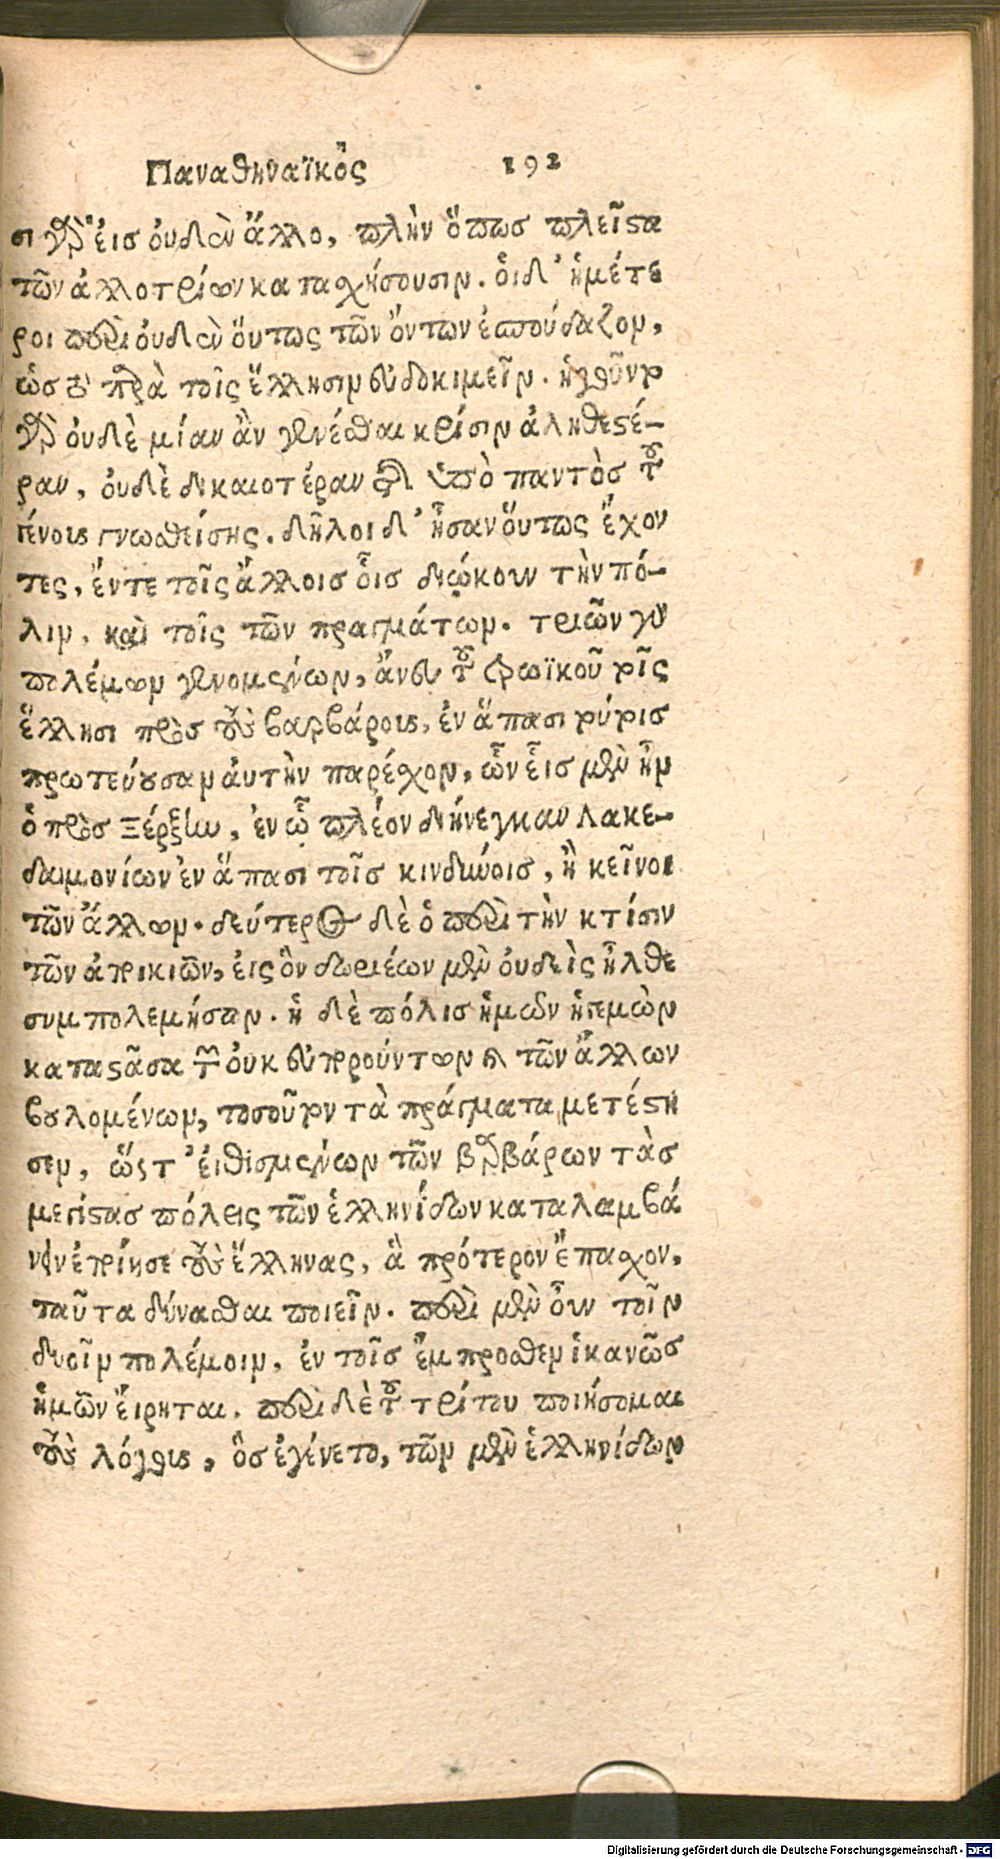 Παναθηναϊκὸς 192
σι γὰρ εἰσ ὀυδὲν ἄλλο, πλὴν ὅπωσ πλεῖστα
τῶν ἀλλοτρίων κατασχήσουσιν. ὁιδ' ἡμέτε
ροι περὶ ὀυδὲν ὅυτως τῶν ὄντων ἐσπούδαζον,
ὡσ τὸ παρὰ τοῖς ἕλλησιν ἐυδοκιμεῖν. ἡγοῦντο
γὰρ ὀυδὲ μίαν ἂν γενέσθαι κρίσιν ἀληθεστέ-
ραν, ὀυδὲ δικαιοτέραν τῆς ὑπὸ παντὸσ τοῦ
γένους γνωσθείσης. δῆλοι δ' ἦσαν ὅυτως ἔχον
τες, ἔντε τοῖς ἄλλοισ οἷσ διῴκουν τὴν πό-
λιν, καὶ τοῖς τῶν πραγμάτων. τριῶν γὰρ
πολέμων γενομένων, ἄνευ τοῦ τρωϊκοῦ τοῖς
ἕλλησι πρὸσ τοὺς βαρβάρους, ἐν ἅπασι τούτοισ
πρωτεύουσαν ἀυτὴν παρέσχον, ὧν εἷσ μὲν ἦν
ὁ πρὸσ Ξέρξην, ἐν ᾧ πλέον διήνεγκαν Λακε-
δαιμονίων ἐν ἅπασι τοῖσ κινδύνοισ, ἢ κεῖνοι
τῶν ἄλλων. δεύτερος δὲ ὁ περὶ τὴν κτίσιν
τῶν ἀποικιῶν, ἐις ὃν δωριέων μὲν ὀυδεὶς ἦλθε
συμπολεμήσων. ἡ δὲ πόλισ ἡμῶν ἡγεμὼν
καταστᾶσα τῶν ὀυκ ἐυπορούντων καὶ τῶν ἄλλων
βουλομένων, τοσοῦτον τὰ πράγματα μετέστη
σεν, ὥστ' ἐιθισμένων τῶν βαρβάρων τὰσ
μεγίστασ πόλεις τῶν ἑλληνίδων καταλαμβά
νειν ἐποίησε τοὺς ἕλληνας, ἃ πρότερον ἔπασχον,
ταῦτα δύνασθαι ποιεῖν. περὶ μὲν οὖν τοῖν
δυοῖν πολέμοιν, ἐν τοῖσ ἔμπροσθεν ἱκανῶσ
ἡμῶν ἔιρηται. περὶ δὲ τοῦ τρίτου ποιήσομαι
τοὺς λόγους, ὃσ ἐγένετο, τῶν μὲν ἑλληνίδων
Digitalisierung gefördert durch die Deutsche Forschungsgemeinschaft - DFG